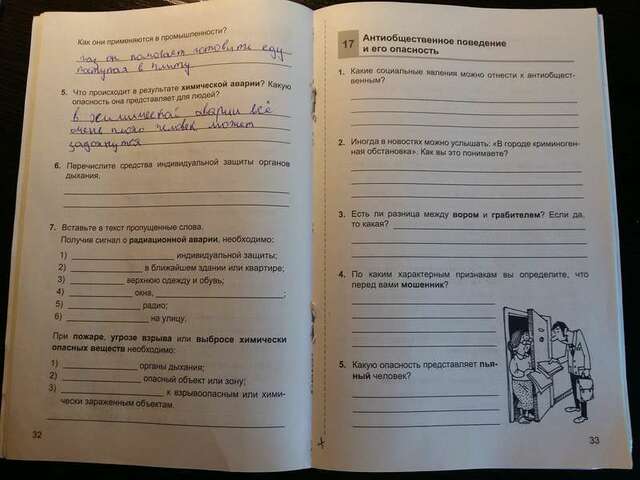 Как они применяются в промышленности?
газ он помогает готовить еду
поступая в плиту
5. Что происходит в результате химической аварии? Какую
опасность она представляет для людей?
В химической аварии всё
очень плохо человек может
задохнуться
6. Перечислите средства индивидуальной защиты органов
дыхания.
7. Вставьте в текст пропущенные слова.
Получив сигнал о радиационной аварии, необходимо:
1) индивидуальной защиты;
2) в ближайшем здании или квартире;
3) верхнюю одежду и обувь;
4) окна, ;
5) радио;
6) на улицу.
При пожаре, угрозе взрыва или выбросе химически
опасных веществ необходимо:
1) органы дыхания;
2) опасный объект или зону;
3) к взрывоопасным или хими-
чески зараженным объектам.
32
17 Антиобщественное поведение
и его опасность
1. Какие социальные явления можно отнести к антиобщест-
венным?
2. Иногда в новостях можно услышать: «В городе криминоген-
ная обстановка». Как вы это понимаете?
3. Есть ли разница между вором и грабителем? Если да,
то какая?
4. По каким характерным признакам вы определите, что
перед вами мошенник?
5. Какую опасность представляет пья-
ный человек?
33